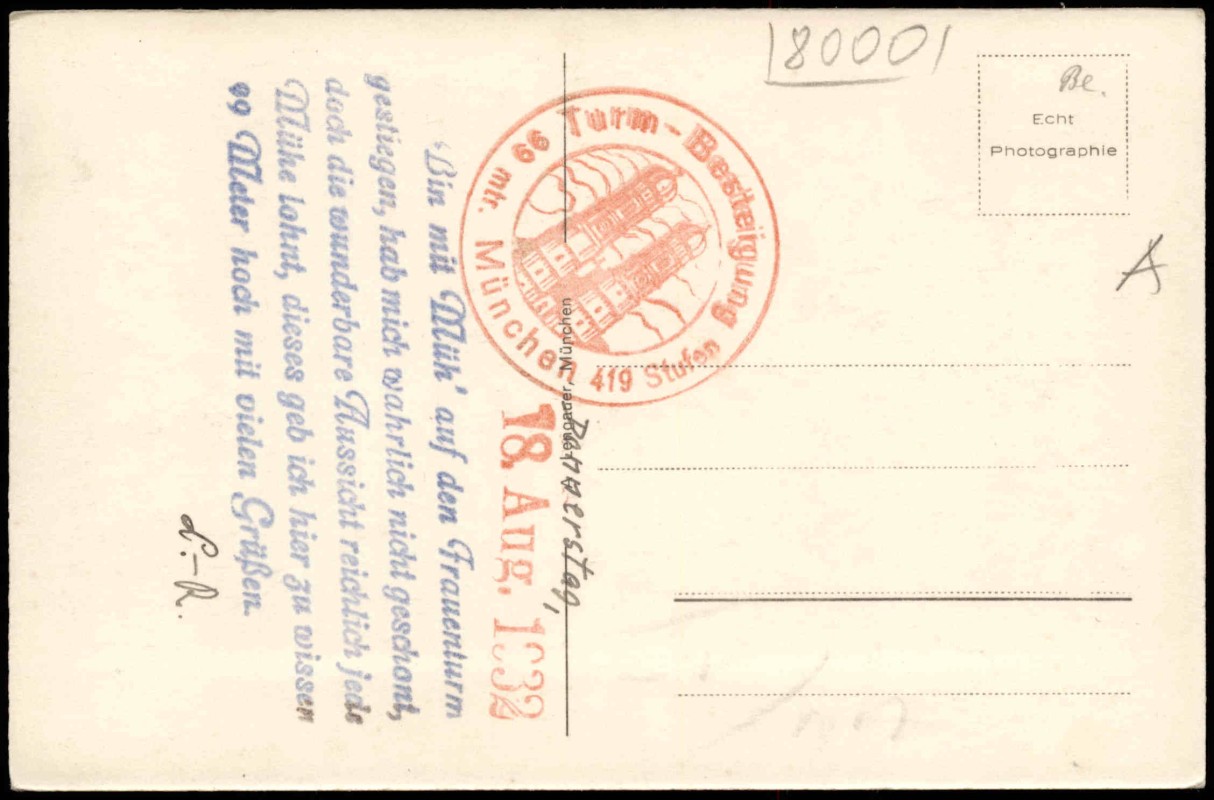 8000
Be.
Echt
Photographie
A
Turm-Besteigung
99 mtr. München 419 Stufen
München
Donnerstag,
18. Aug. 1932
Bin mit Müh' auf den Frauenturm
gestiegen, hab mich wahrlich nicht geschont,
doch die wunderbare Aussicht reichlich jede
Mühe lohnt, dieses geb ich hier zu wissen
99 Meter hoch mit vielen Grüßen.
L.-R.